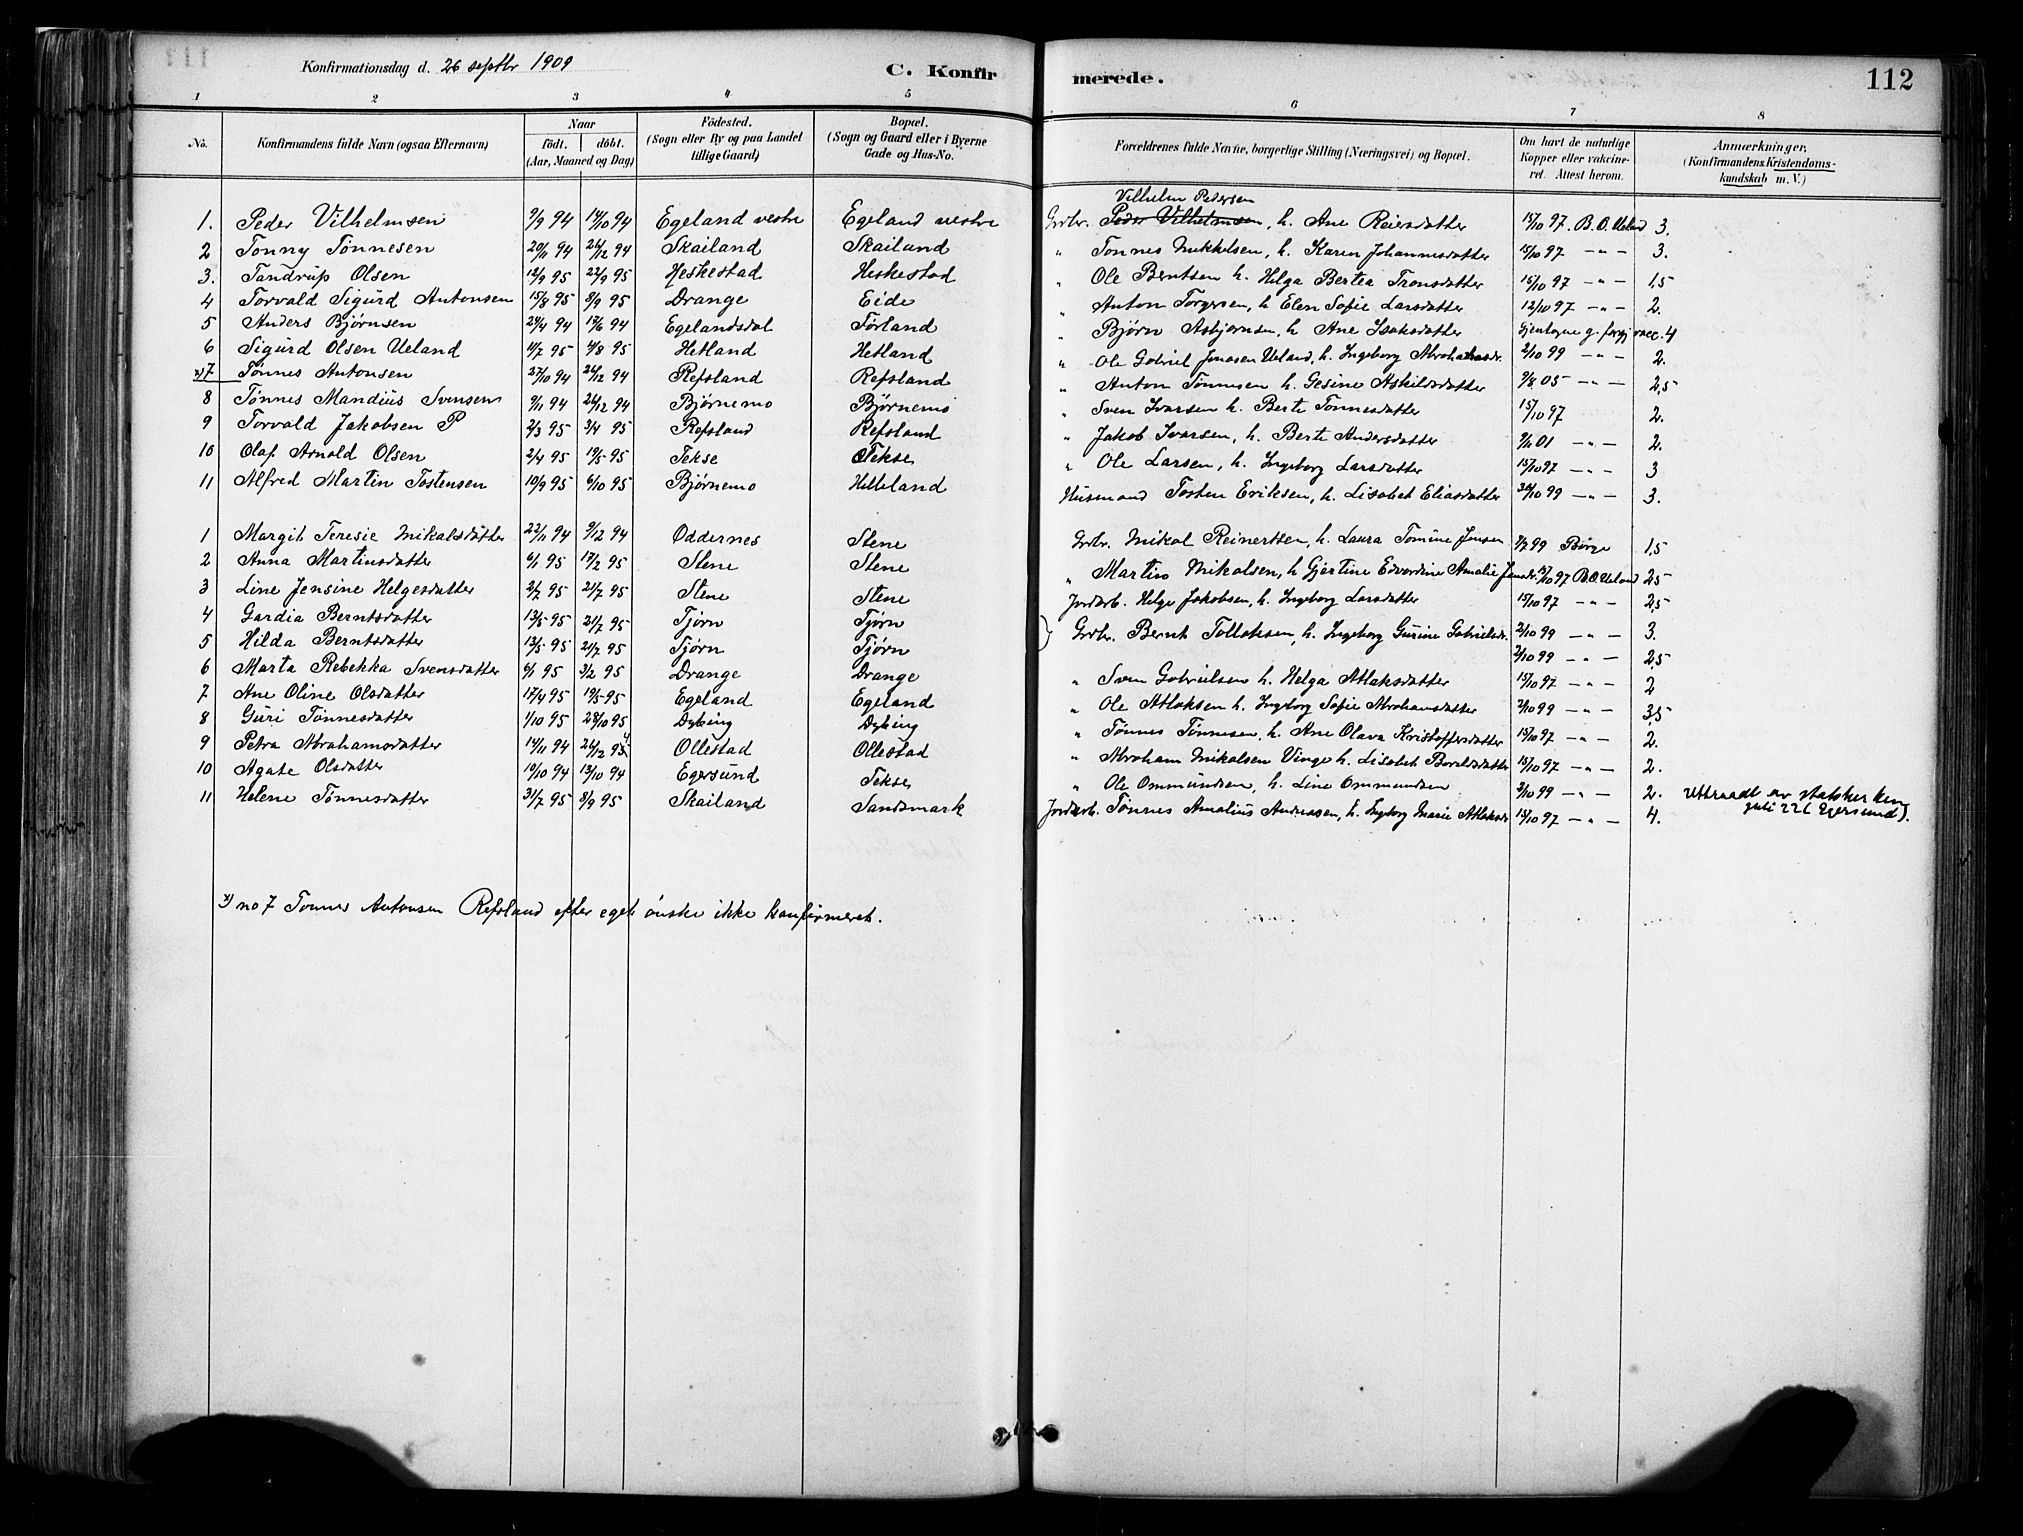 Konfirmationsdag d. 26 septbr 1909
C. Konfirmerede.
112
1 2 3 4 5 6 7 8
No. Konfirmandens fulde Navn (ogsaa Efternavn) Naar födt. döbt. (Aar, Maaned og Dag) Födested. (Sogn eller By og paa Landet tillige Gaard) Bopæl. (Sogn og Gaard eller i Byerne Gade og Hus-No. Forældrenes fulde Navne, borgerlige Stilling (Næringsvei) og Bopæl. Om havt de naturlige Kopper eller vakcineret. Attest herom. Anmærkninger. (Konfirmandens Kristendomskundskab m. V.)
Vilhelm Pedersen
1. Peder Vilhelmsen 9/9 94 14/10 94 Egeland vestre Egeland vestre Grdbr. Peder Vilhelmsen, h. Ane Reiersdatter 15/10 97. B.O. Ueland 3.
2 Tonny Tönnesen 20/11 94 26/12 94 Skailand Skailand " Tonnes Mikkelsen, h. Karen Johannesdatter 15/10 97 - " - 3.
3. Tandrup Olsen 12/9 95 22/9 95 Heskestad Heskestad " Ole Bentsen h. Helga Bertea Tronsdatter 15/10 97 - " - 1,5
4 Torvald Sigurd Antonsen 15/8 95 8/9 95 Drange Eide " Anton Torgersen, h Elen Sofie Larsdatter 12/10 97 - " - 2.
5 Anders Bjørnsen 24/4 94 17/6 94 EgelandsdalFørland " Bjørn Asbjørnsen, h. Ane Isaksdatter Gjentagne g. forgj vacc. 4
6 Sigurd Olsen Ueland 11/7 95 4/8 95 Hetland Hetland " Ole Gabriel Jonasen Ueland, h. Ingeborg Abrahamsdr. 2/10 99 - " - 2.
x) 7 Tønnes Antonsen 27/10 94 26/12 94 Refsland Refsland " Anton Tønnesen h. Gesine Askildsdatter 9/8 05 - " - 2,5
8 Tønnes Mandius Svensen 9/11 94 26/12 94 Bjørnemo Bjørnemo " Sven Ivarsen h. Berte Tonnesdatter 15/10 97 2.
9 Torvald Jakobsen P 2/3 95 3/4 95 Refsland Refsland " Jakob Ivarsen, h. Berte Andersdatter 01 - " - 2.
10 Olaf Arnold Olsen 2/4 95 19/5 95 Tekse Tekse " Ole Larsen, h. Ingeborg Larsdatter 15/10 97 - " - 3
11 Alfred Martin Tostensen 10/9 95 6/10 95 Bjørnemo Helleland Husmand Tosten Eriksen, h. Lisabet Eliasdatter 30/10 99 - " - 3.
1 Margit Teresie Mikalsdatter 22/11 94 9/12 94 Oddernes Stene Grdbr. Mikal Reinertsen, h. Laura Tomine Jensen 7/7 99 Børge 1,5
2 Anna Martinsdatter 6/1 95 17/2 95 Stene Stene " Martin Mikalsen, h Gjertine Edvardine Amalie Jensdr. 15/10 97 B.O. Ueland 2,5
3 Line Jensine Helgesdatter 2/7 95 21/7 95 Stene Stene Jordarb. Helge Jakobsen, h. Ingeborg Larsdatter 15/10 97 - " - 2,5
4 Gardia Berntsdatter 13/5 95 21/7 95 Tjørn Tjørn Grdbr. Bernt Tollaksen, h. Ingeborg Gurine Gabrielsdr. 2/10 99 - " - 3.
5 Hilda Berntsdatter 13/5 95 21/7 95 Tjørn Tjørn 2/10 99 - " - 2,5
6 Marta Rebekka Svensdatter 6/1 95 3/2 95 Drange Drange " Sven Gabrielsen h. Helga Atlaksdatter 15/10 97 - " - 2
7 Ane Oline Olsdatter 17/4 95 19/5 95 Egeland Egeland " Ole Atlaksen h. Ingeborg Sofie Abrahamsdatter 2/10 99 - " - 3,5
8 Guri Tønnesdatter 1/10 95 28/10 95 Dybing Dybing " Tønnes Tønnesen, h. Ane Olava Kristoffersdatter 15/10 97 - " - 2.
9 Petra Abrahamsdatter 14/11 94 26/12 954 Ollestad Ollestad " Abraham Mikalsen Vinge h. Lisabet Bareldsdatter 15/10 97 - " - 2.
10 Agate Olsdatter 10/10 94 13/10 94 Egersund Tekse " Ole Ommundsen, h. Line Ommundsen 2/10 99 - " - 2. Uttraadt av statskirken
11 Helene Tønnesdatter 31/7 95 8/9 95 Skailand Sandsmark Jordarb. Tønnes Amalius Andreassen, h. Ingborg Marie Atlaksdr 15/10 97 - " - 4. juli 22 (Egersund).
x) no 7 Tønnes Antonsen Refsland efter eget ønske ikke konfirmeret.